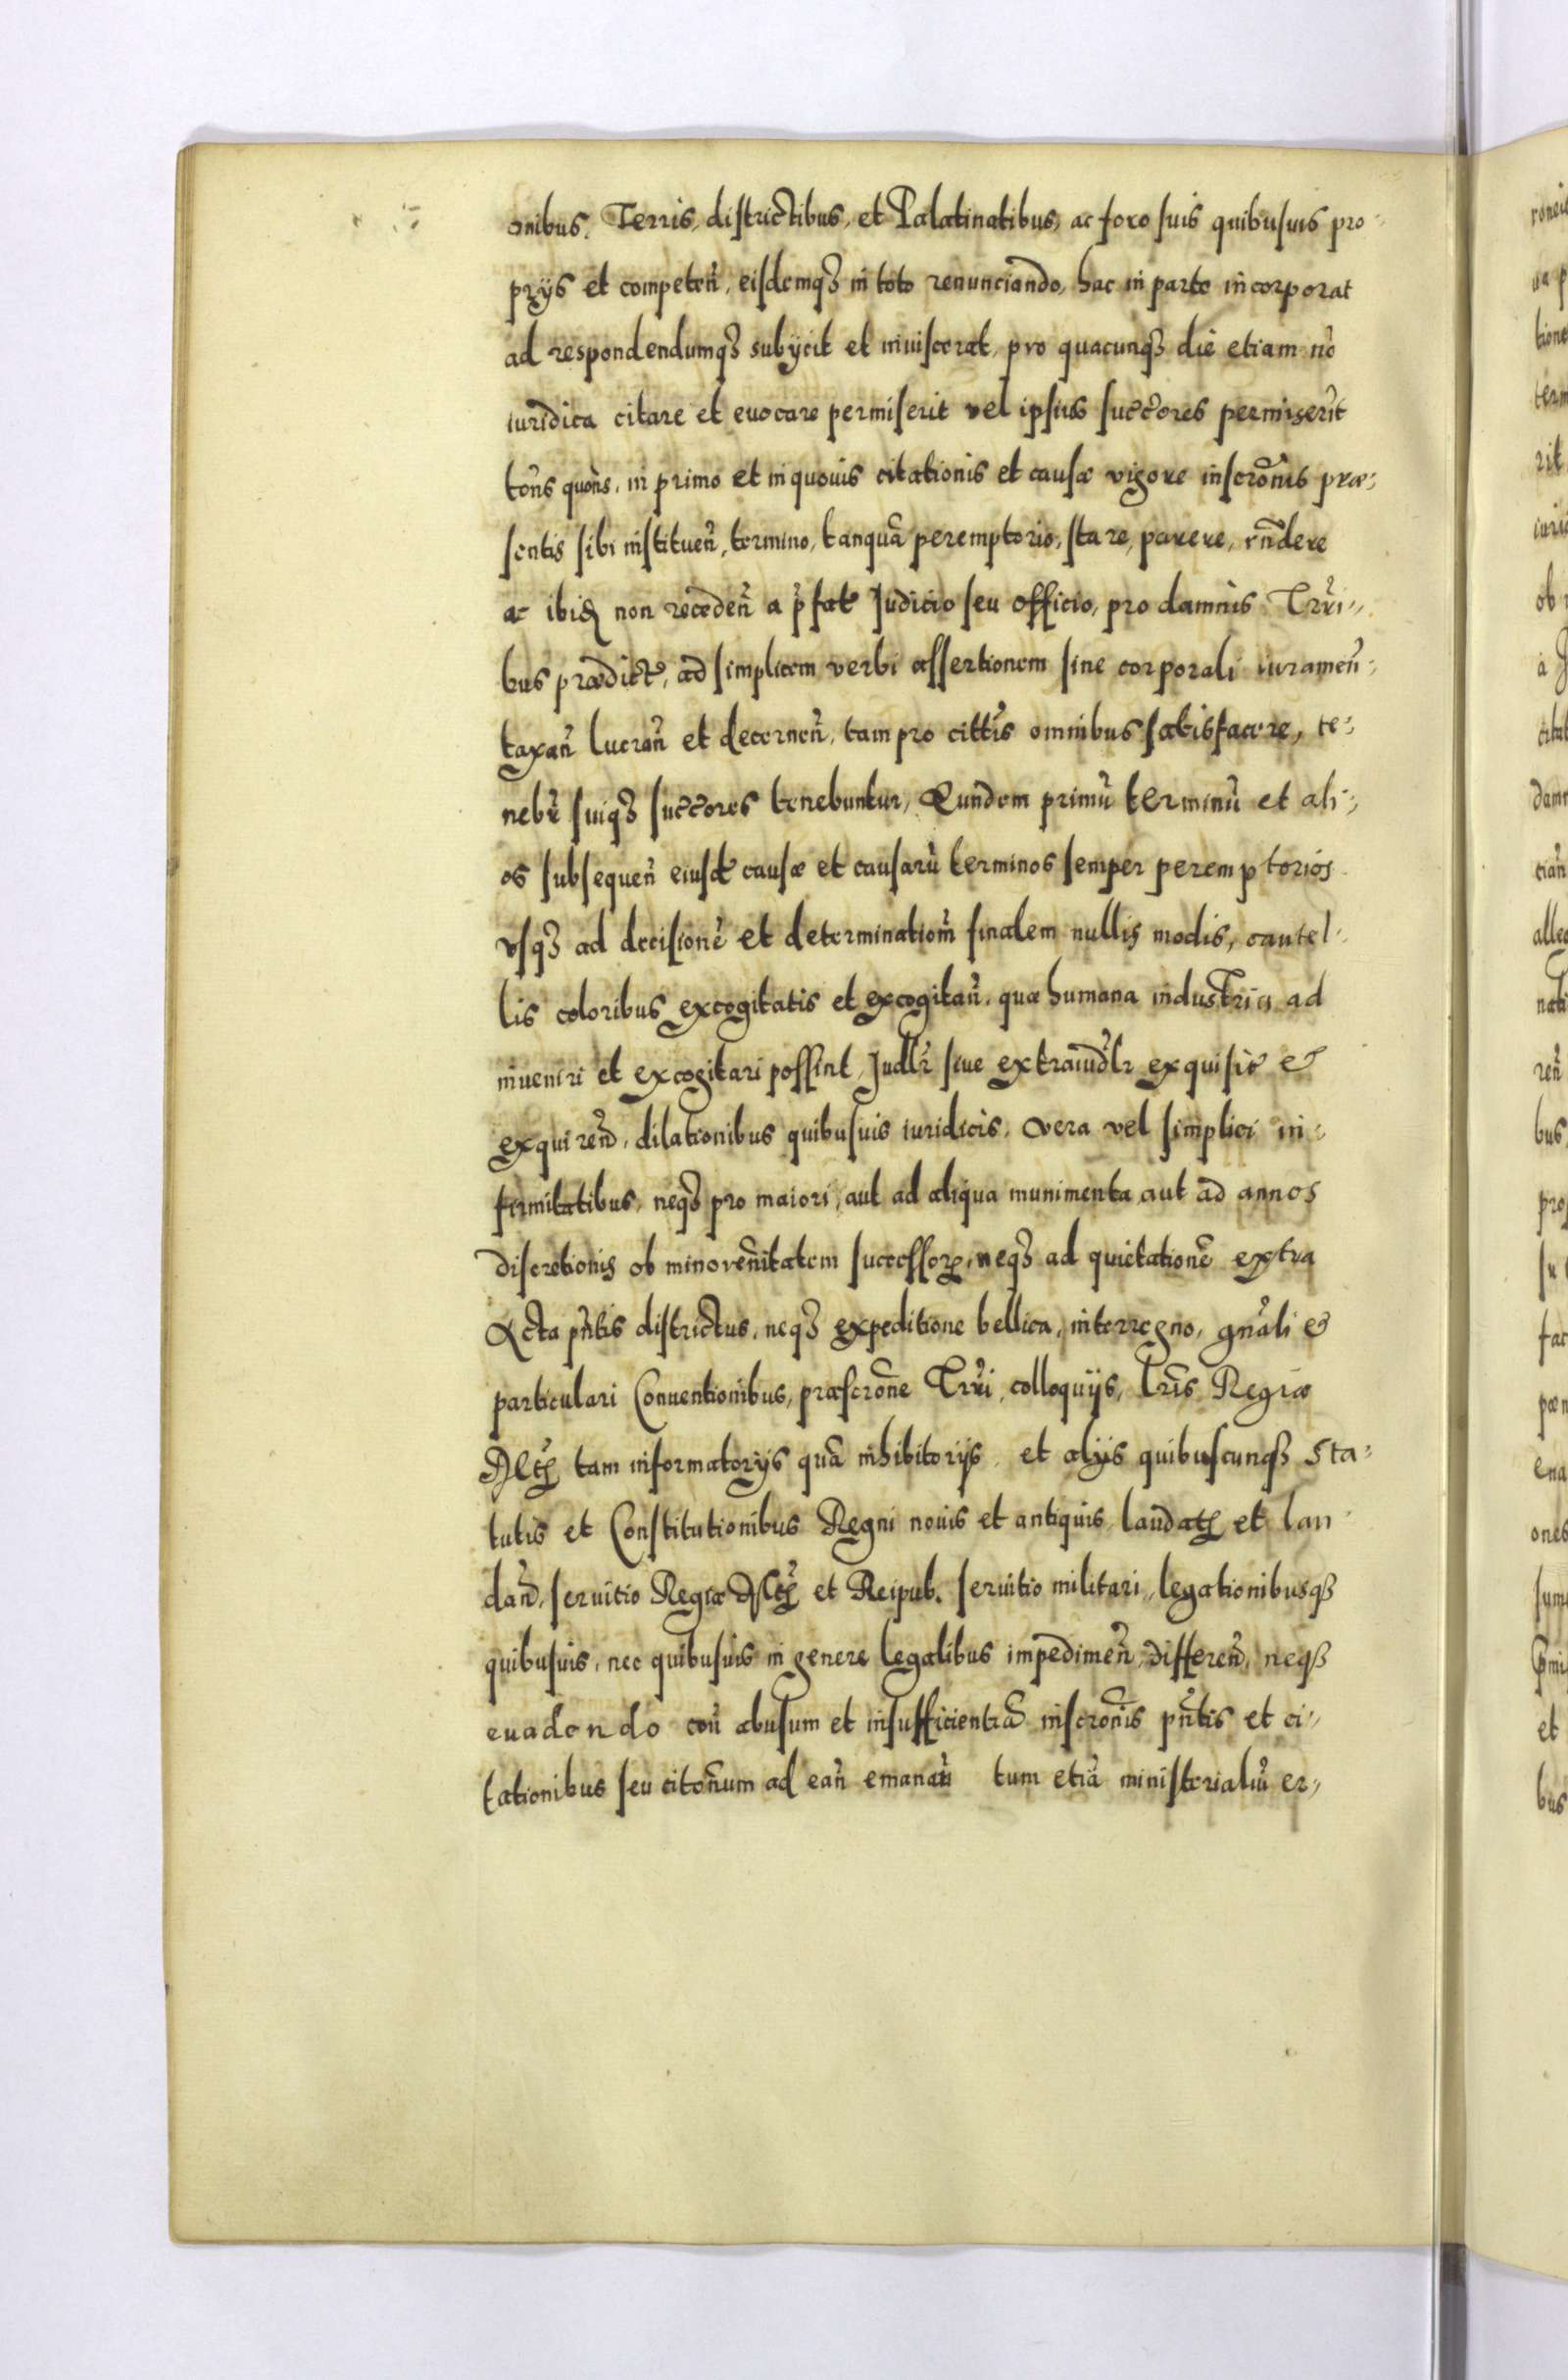 onibus. Terris, districtibus, et Palatinatibus, ac foro suis quibusuis pro-
prijs et competen̄, eisdemq3 in toto renunciando, hac in parte incorporat
ad respondendumq3 subijcit et inuiscerat, pro quacunq3 die etiam nō
iuridica citare et euocare permiserit vel ipsius succ̄ores permiserīt
tōns quōns, in primo et in quouis citationis et causæ vigore inscrōnis præ-
sentis sibi instituen̄, termino, tanquā peremptorio, stare, parere, rn̄dere
ac ibid non receden̄ a p̄fat Judicio seu officio, pro damnis Trri-
bus prædict, ad simplicem verbi assertionem sine corporali iuramen̄-
taxan̄ lucran̄ et decernen̄, tam pro cittīs omnibus satisfacere, te-
nebr̄ suiq3 succ̄ores tenebuntur, Eundem primū terminū et ali-
os subsequen̄ eiusd causæ et causarū terminos semper peremptorios
vsq3 ad decisionē et determinatiom̄ finalem nullis modis, cautel-
lis coloribus excogitatis et excogitan̄, quæ humana industria ad
inueniri et excogitari possint, Judlr̄ siue extraiudlr̄ exquisit et
exquirend̄, dilationibus quibusuis iuridicis, vera vel simplici in-
firmitatibus, neq3 pro maiori, aut ad aliqua munimenta aut ad annos
discretionis ob minorēnitatem successorȝ, neq3 ad quietationē extra
Acta pn̄tis districtus, neq3 expeditione bellica, interregno, gn̄ali et
particulari Conuentionibus, præscrōne Trri, colloquijs, Lrīs Regiæ
Mttis tam informatorijs quā inhibitorijs et alijs quibuscunq3 sta-
tutis et Constitutionibus Regni nouis et antiquis laudatis et lau-
dan̄d, seruitio Regiæ Mttis et Reipub. seruitio militari, legationibusq3
quibusuis, nec quibusuis in genere legalibus impedimen̄, differen̄, neq3
euadendo con̄ abusum et insufficientiā inscrōnis pn̄tis et ci-
tationibus seu citōnum ad ean̄ emanan̄ tum etiā ministerialiū er-